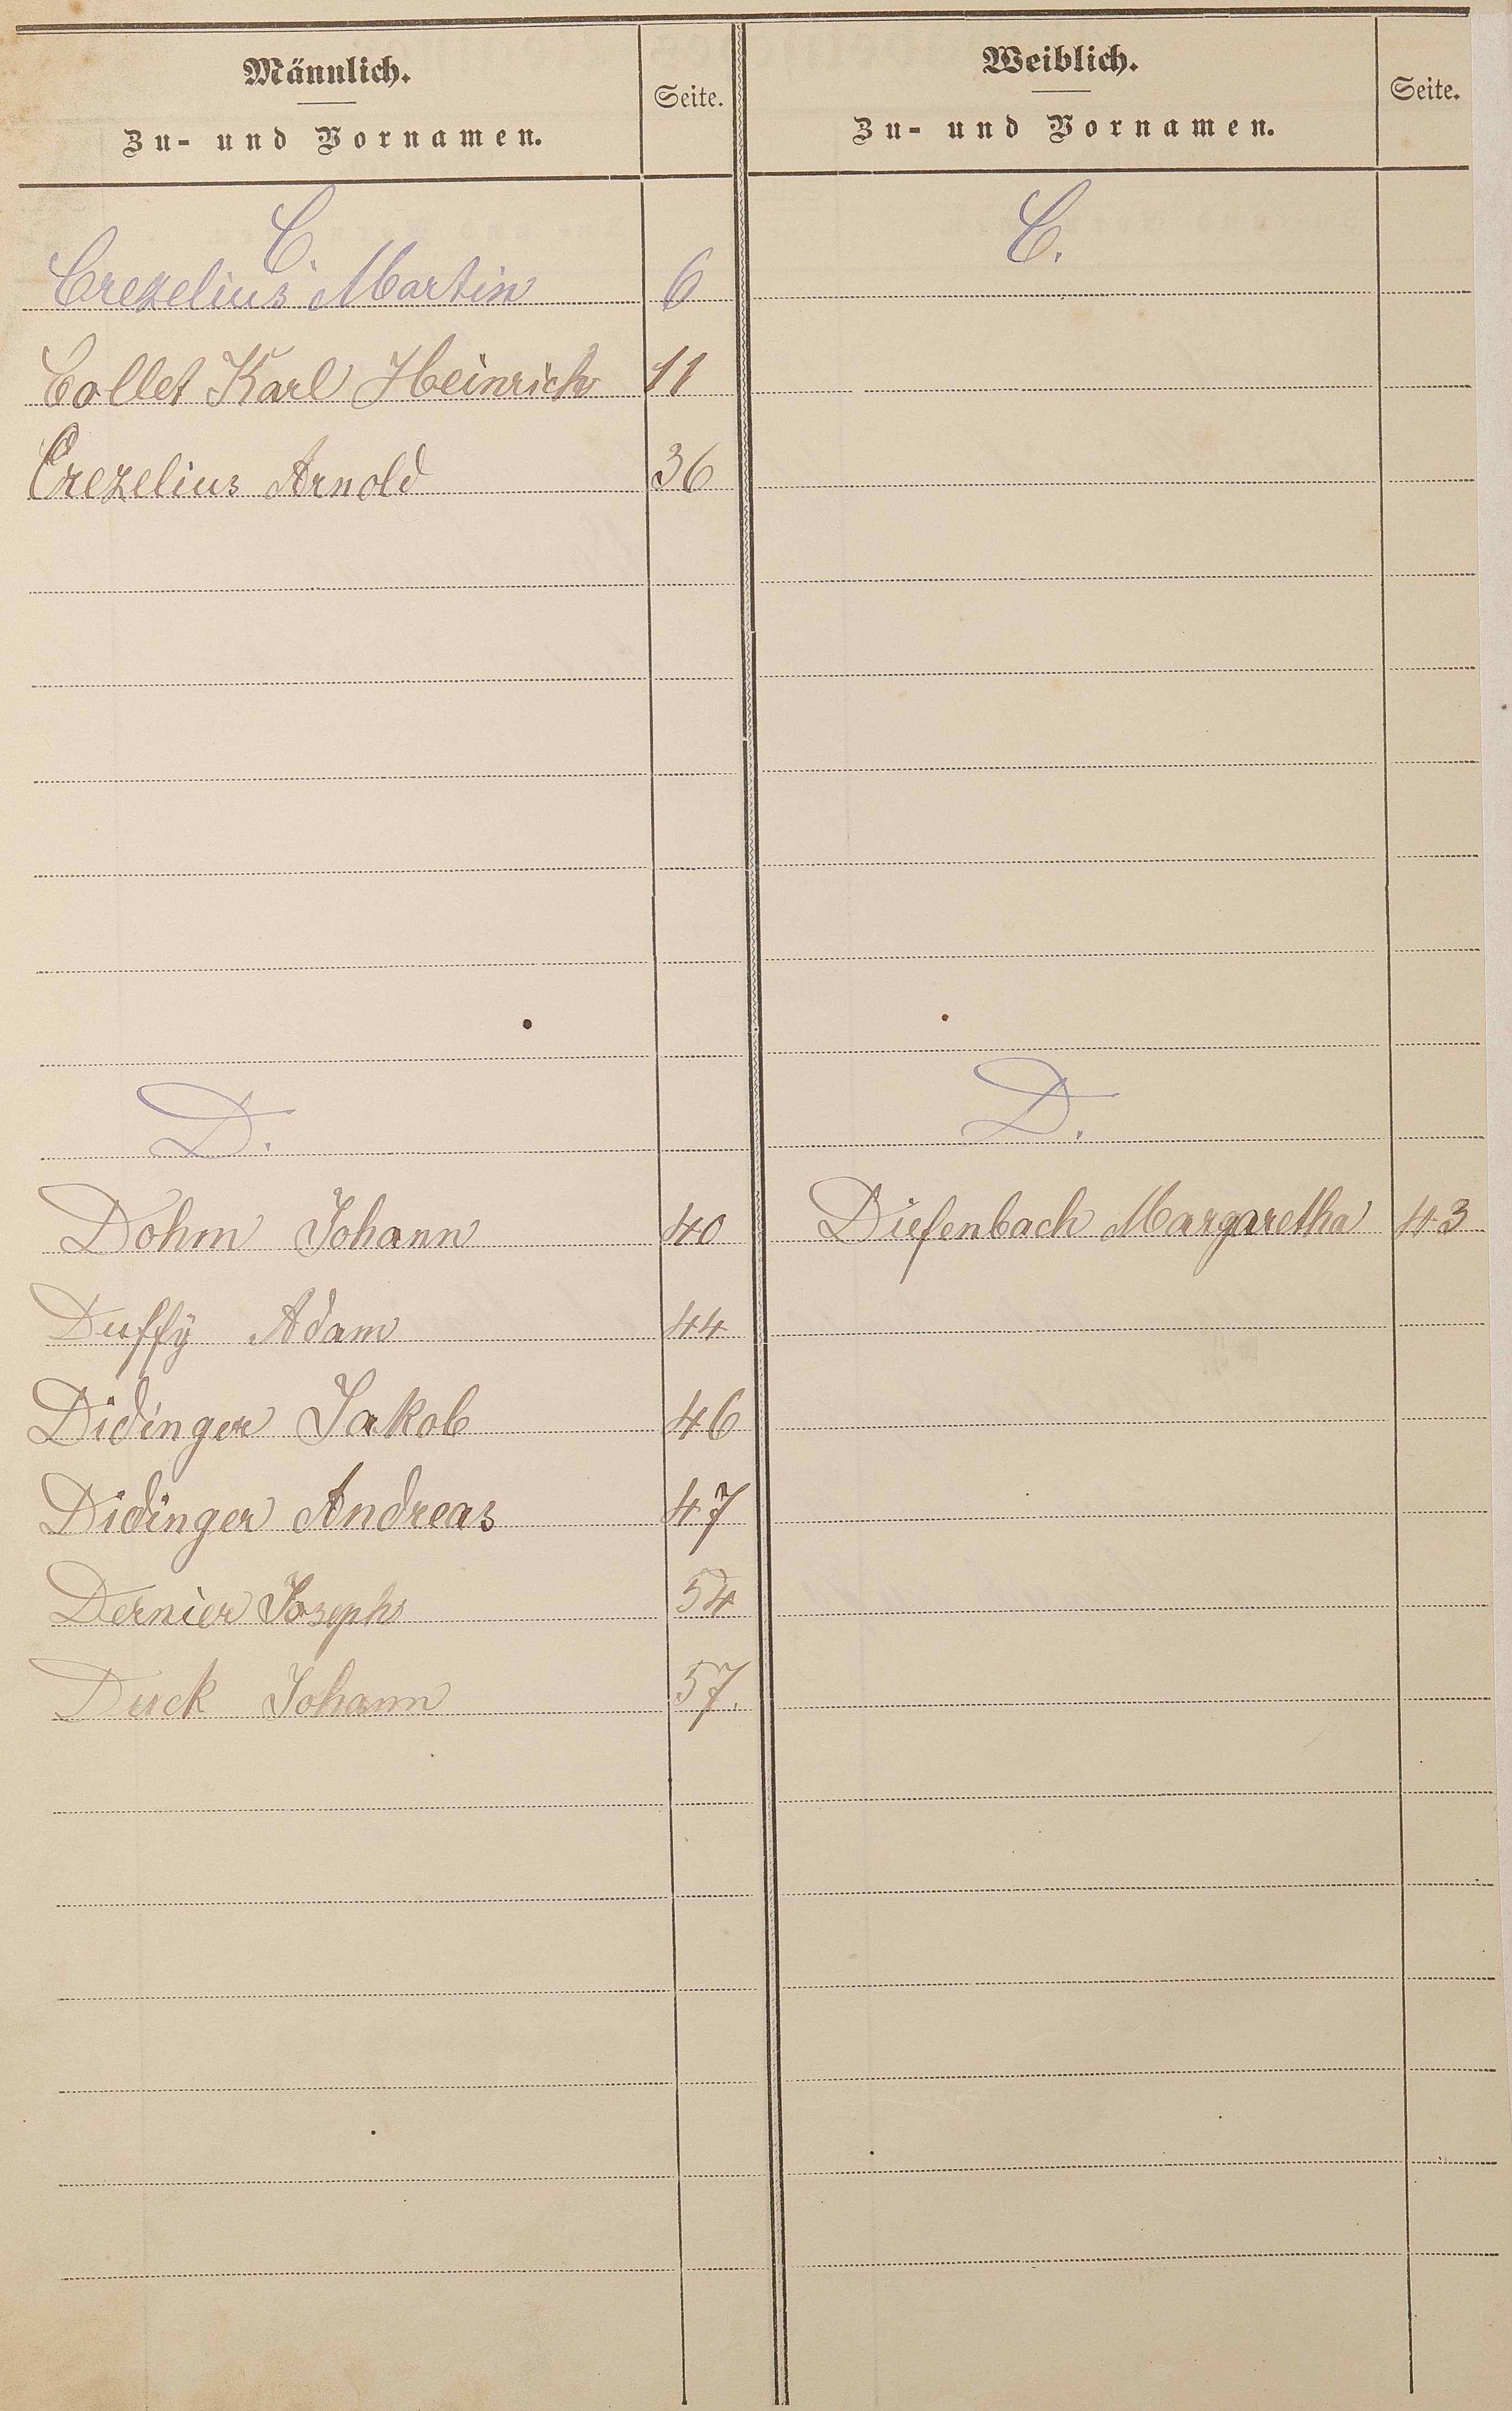 Männlich.
Zu- und Vornamen.
Seite.
C.
Crezelius Martin 6
Collet Karl Heinrich 11
Crezelius Arnold 36
D.
Dohm Johann 40
Duffÿ Adam 44
Didinger Jakob 46
Didinger Andreas 47
Dernier Joseph 54
Duck Johann 57.
Weiblich.
Zu- und Vornamen.
Seite.
C.
D.
Diefenbach Margaretha 43